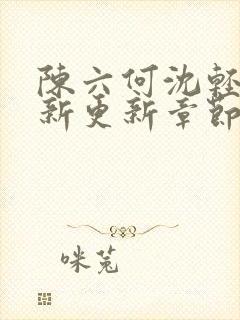 陳六何沈輕
新更新章節
咪兎